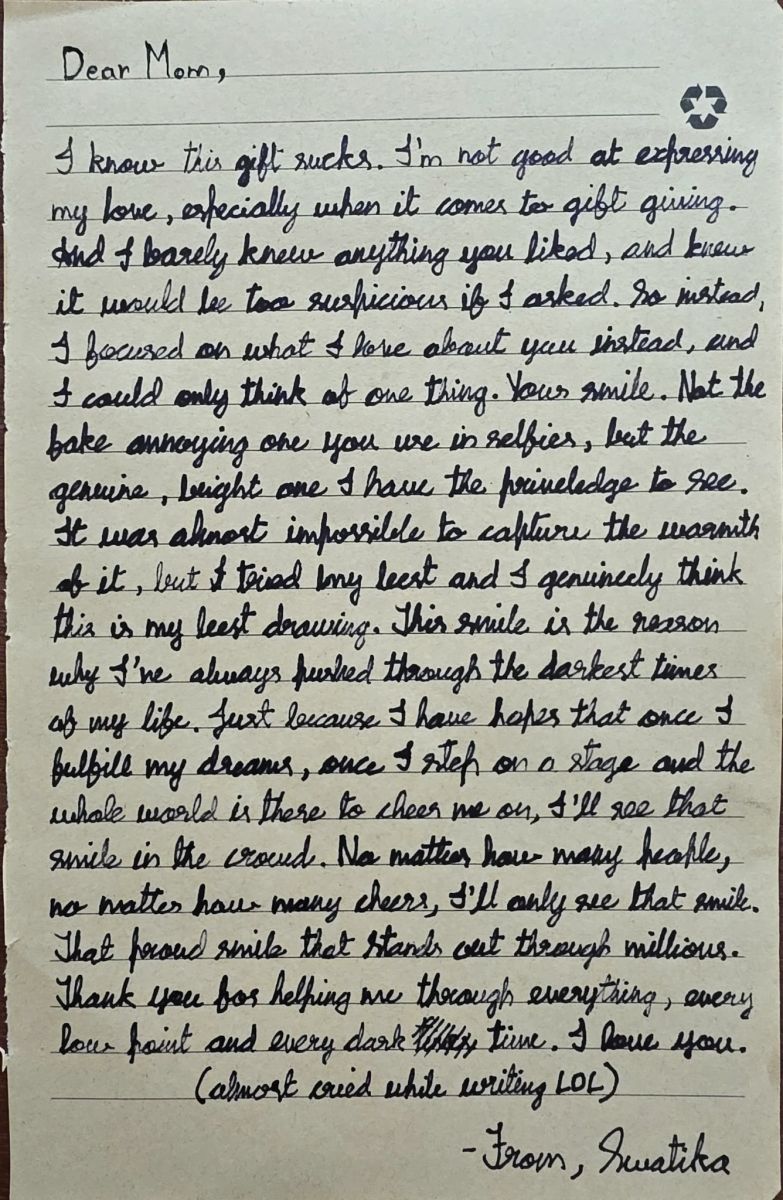 Dear Mom,
I know this gift sucks. I'm not good at expressing
my love, especially when it comes to gift giving.
And I barely knew anything you liked, and knew
it would be too suspicious if I asked. So instead,
I focused on what I love about you instead, and
I could only think of one thing. Your smile. Not the
fake annoying one you use in selfies, but the
genuine, bright one I have the priveledge to see.
It was almost impossible to capture the warmth
of it, but I tried my best and I genuinely think
this is my best drawing. This smile is the reason
why I've always pushed through the darkest times
of my life. Just because I have hopes that once I
fulfill my dreams, once I step on a stage and the
whole world is there to cheer me on, I'll see that
smile in the crowd. No matter how many people,
no matter how many cheers, I'll only see that smile.
That proud smile that stands out through millions.
Thank you for helping me through everything, every
low point and every dark time. I love you.
(almost cried while writing LOL)
- From, Swatika